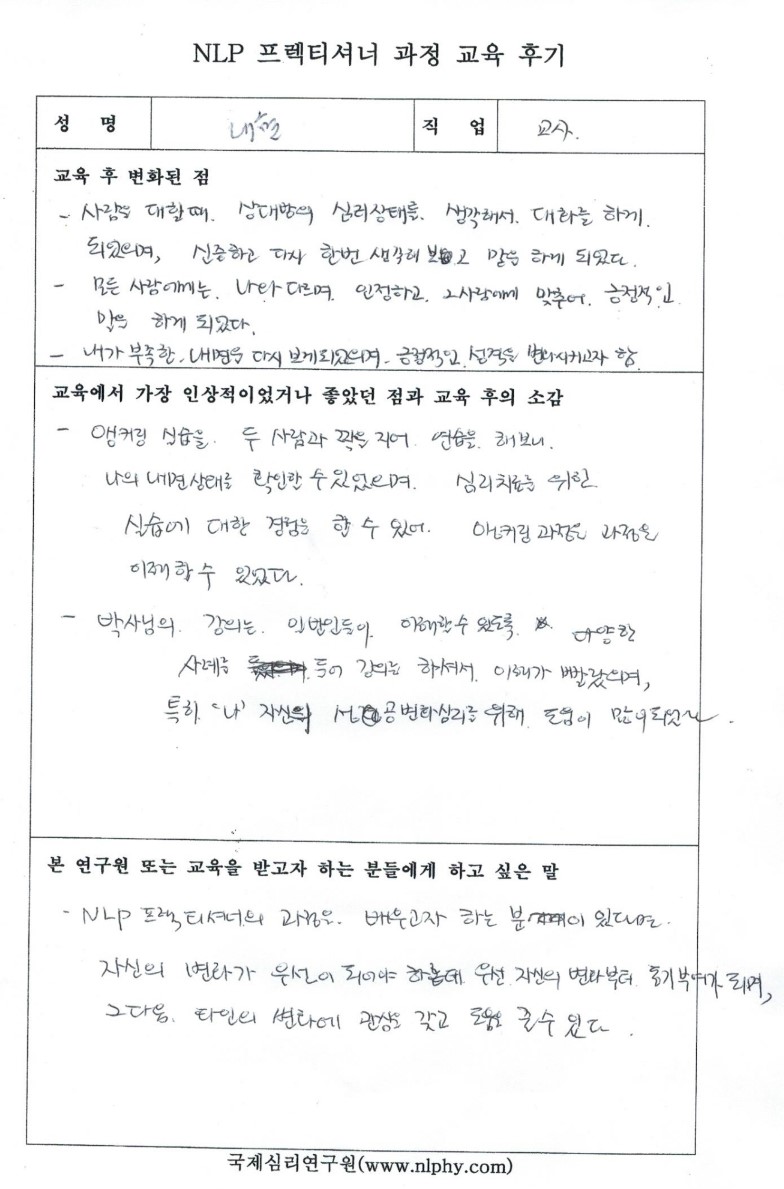 NLP 프렉티셔너 과정 교육 후기
성 명 직 업 교사.
교육 후 변화된 점
- 사람을 대할때. 상대방의 심리상태를. 생각해서. 대화를 하게.
되었으며, 신중하고 다시 한번 생각해 보고 말을 하게 되었다.
- 모든 사람에게는. 나와 다르며. 인정하고. 그사람에게 맞추어. 긍정적인
말을 하게 되었다.
- 내가 부족한. 내면을 다시 보게되었으며. 긍정적인 성격을 변화시키고자 함.
교육에서 가장 인상적이었거나 좋았던 점과 교육 후의 소감
- 앵커링 실습을. 두 사람과 짝을 지어. 연습을. 해보니.
나의 내면상태를 확인할 수 있었으며. 심리치료를 위한.
실습에 대한 경험을 할 수 있어. 앵커링 과정을 과정을
이해할 수 있었다.
- 박사님의. 강의는. 일반인들이. 이해할수 있도록. 다양한
사례를 들어 강의를 하셔서. 이해가 빨랐으며,
특히 "나" 자신의 성공변화심리를 위해. 도움이 많이 되었다.
본 연구원 또는 교육을 받고자 하는 분들에게 하고 싶은 말
- NLP 프랙티셔너의 과정을. 배우고자 하는 분이 있다면.
자신의 변화가 우선이 되어야 하는데. 우선. 자신의 변화부터. 동기부여가 되며,
그다음. 타인의 변화에 관심을 갖고 도움을 줄수 있다.
국제심리연구원(www.nlphy.com)